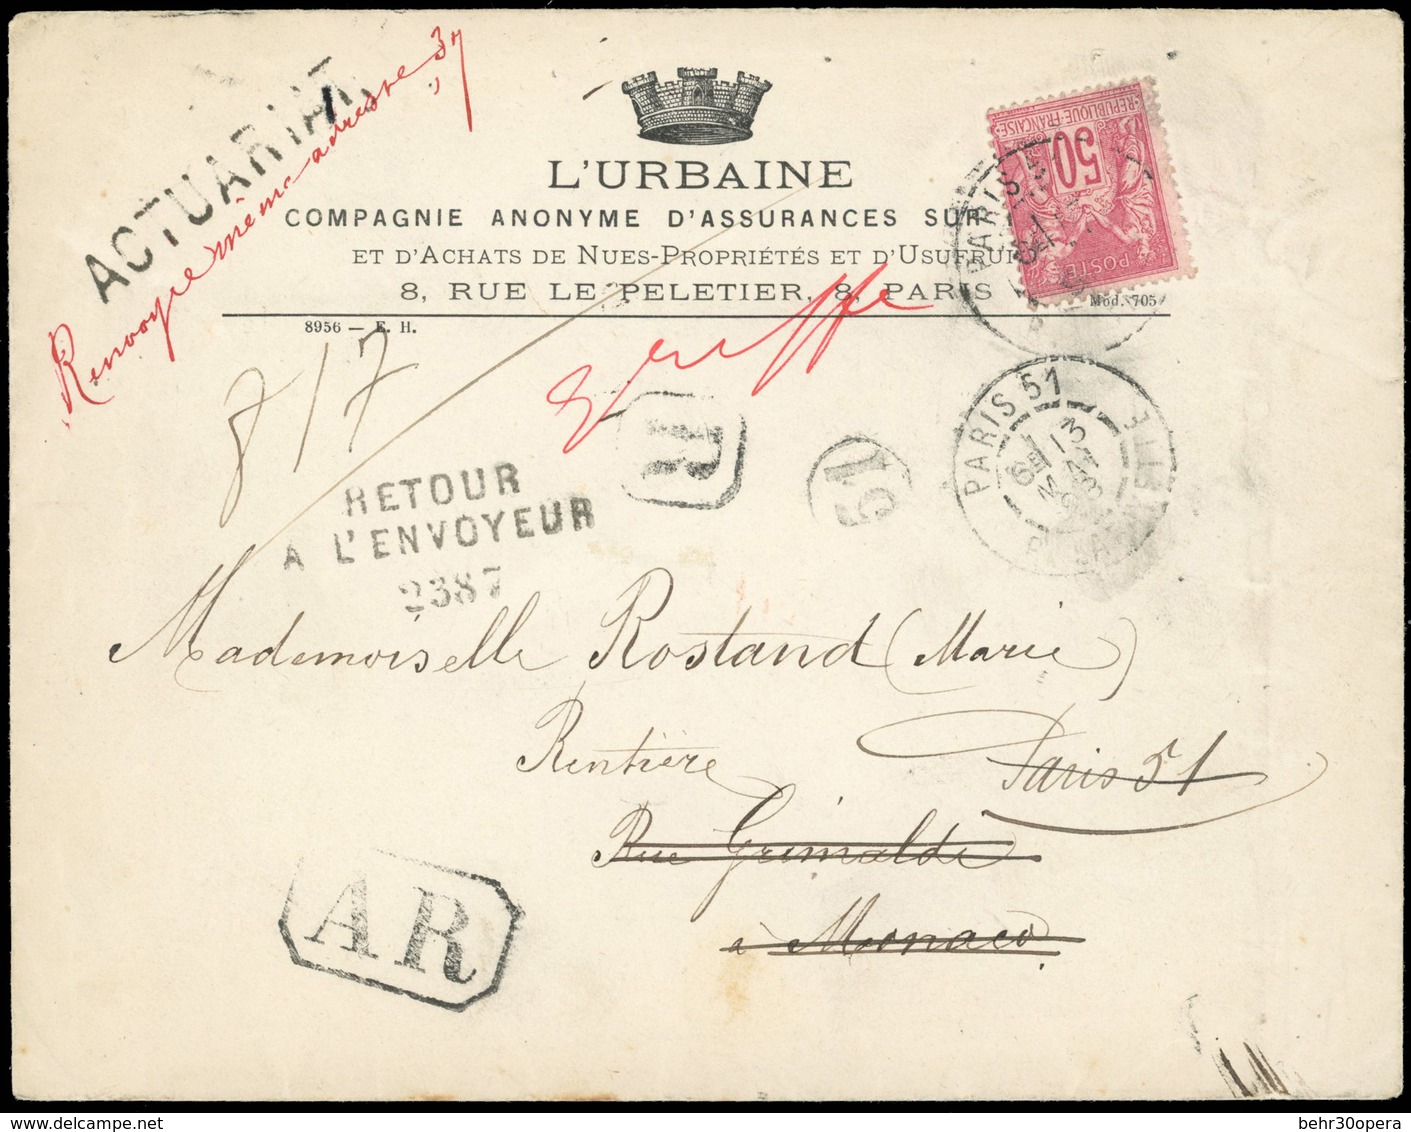 ACTUARIAT
Renvoyé même adresse 37
L'URBAINE
COMPAGNIE ANONYME D'ASSURANCES SUR
ET D'ACHATS DE NUES-PROPRIÉTÉS ET D'USUFRUI
8, RUE LE PELETIER, 8, PARIS
8956 — E. H.
Mod. 705
REPUBLIQUE-FRANÇAISE
50
POSTES
PARIS
817
R
51
PARIS 51
6E 13
MAI
RETOUR
A L'ENVOYEUR
2387
Mademoiselle Rostand (Marie)
Rentière Paris 51
Rue Grimaldi
à Monaco
AR
behr30opera